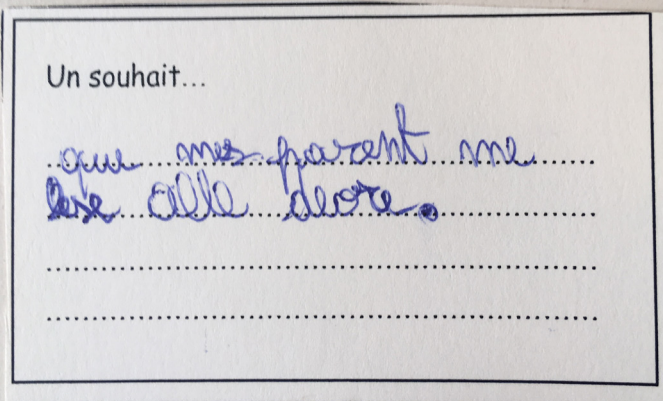 Un souhait...
que mes parent me
lese alle deore.